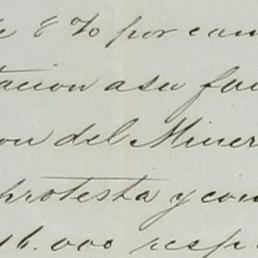 8% por cam
tacion a su fa
on del Miner
protesta y con
16.000 resp